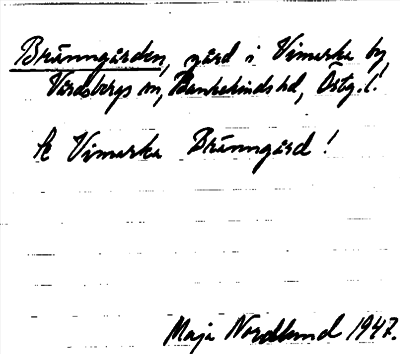 Bränngården, gård i Vimarka by,
Vårdsbergs sn, Bankekinds hd, Östg.l.
Se Vimarka Bränngård!
Maja Nordlund 1947.